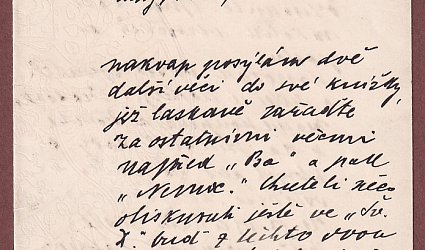 nakvap posýlám dvě
další věci do své knížky,
již laskavě zařaďte
za ostatními věcmi
napřed „Ba" a pak
Chcete-li něco
otisknouti ještě ve „Sv.
X." buď z těchto dvou